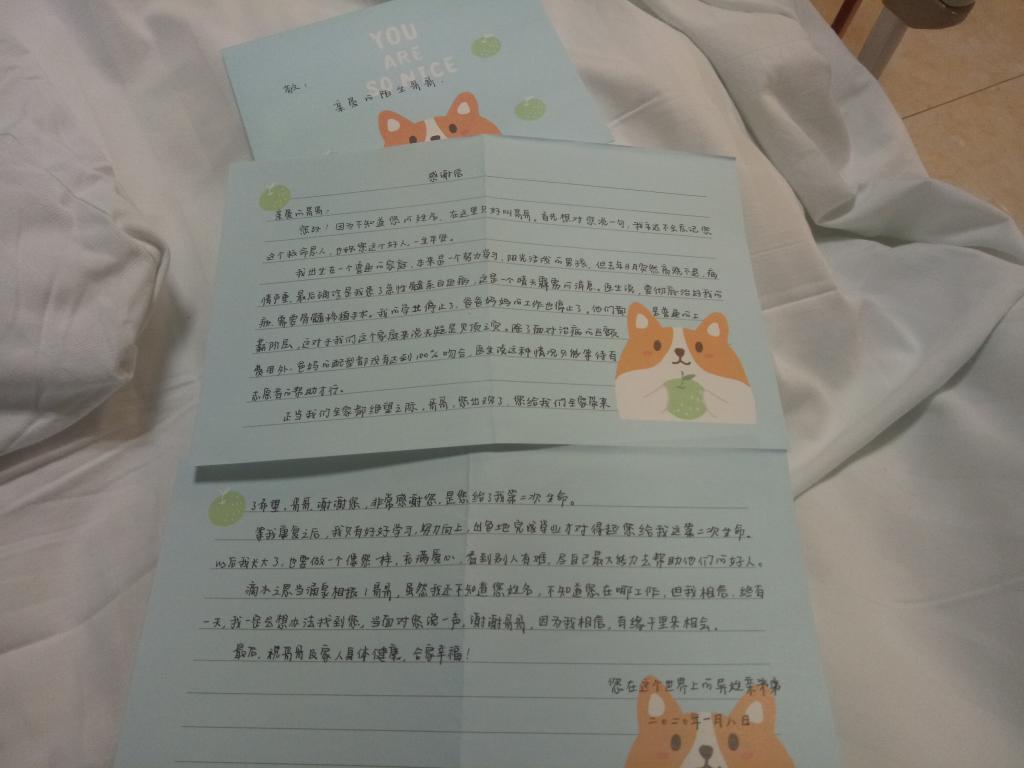 YOU
ARE
SO NICE
致:
亲爱的陌生哥哥.
感谢信
亲爱的哥哥:
您好!因为不知道您的姓名,在这里只好叫哥哥。首先想对您说一句,我永远不会忘记您
这个救命恩人,也祝您这个好人,一生平安。
我出生在一个普通的家庭,本来是一个努力学习,阳光活泼的男孩,但去年8月突然高烧不退,病
情严重,最后确诊是我患了急性髓系白血病,这是一个晴天霹雳的消息。医生说,要彻底治好我的
病,需要骨髓移植手术。我的学业停止了,爸爸妈妈的工作也停止了,他们都是普通的工
薪阶层,这对于我们这个家庭来说无疑是灭顶之灾。除了面对治病的巨额
费用外,爸妈的配型都没有达到100%吻合,医生说这种情况只能等待有
志愿者的帮助才行。
正当我们全家都绝望之际,哥哥,您出现了,您给我们全家带来
了希望,哥哥,谢谢您,非常感谢您,是您给了我第二次生命。
等我康复之后,我只有好好学习,努力向上,出色地完成学业才对得起您给我这第二次生命。
以后我长大了,也要做一个像您一样,有满爱心,看到别人有难,尽自己最大能力去帮助他们的好人。
滴水之恩当涌泉相报!哥哥,虽然我还不知道您姓名,不知道您在哪工作,但我相信,总有
一天,我一定会想办法找到您,当面对您说一声,谢谢哥哥,因为我相信,有缘千里来相会。
最后,祝哥哥及家人身体健康,合家幸福!
您在这个世界上的异姓亲弟弟
二〇二〇年一月八日